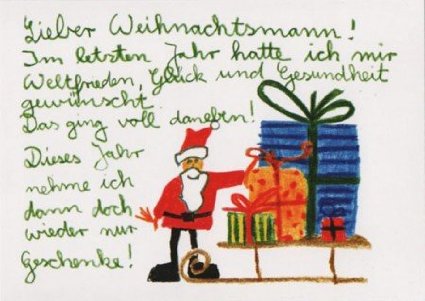 Lieber Weihnachtsmann!
Im letzten Jahr hatte ich mir
Weltfrieden, Glück und Gesundheit
gewünscht.
Das ging voll daneben!
Dieses Jahr
nehme ich
dann doch
wieder nur
Geschenke!